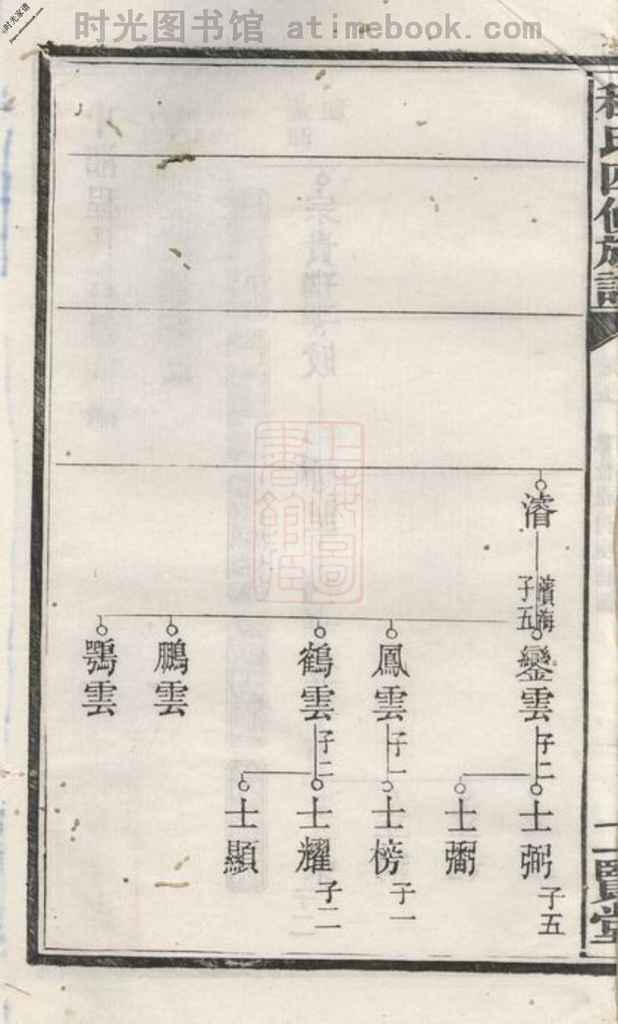 时光图书馆 atimebook.com
时光家谱
氏四修族譜
賢堂
濬
濱海
子五
鑾雲 子二
鳳雲 子一
鶴雲 子二
鵬雲
鶚雲
士弼 子五
士榜 子一
士耀 子二
士顯